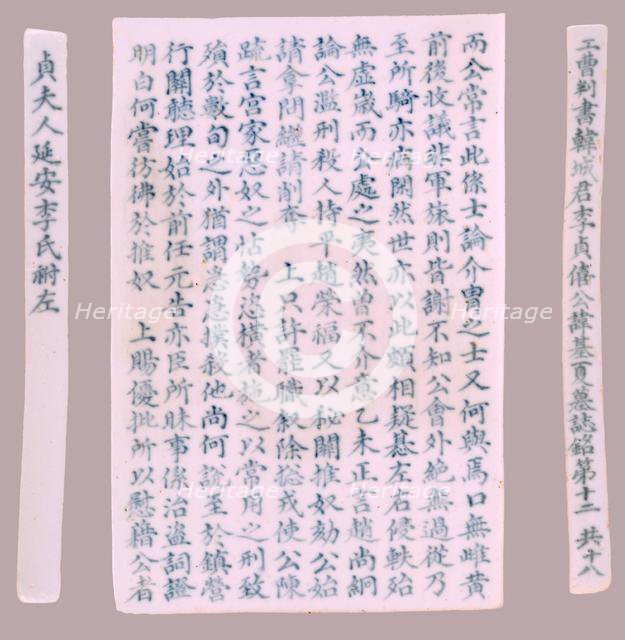 工曹判書韓城君李貞僖公諱基夏墓誌銘第十二 共十八
而公常言此係士論介胄之士又何與焉口無雌黃
前後收議非軍旅則皆謝不知公會外絶無過從乃
至所騎亦閑然世亦以此頗相疑惎左右侵軼殆
無虛歲而公處之夷然曾不介意乙未正言趙尚絅
論公濫刑殺人持平趙榮福又以秘關推奴劾公始
請拿問繼請削奪 上只許罷職敍除捴戎使公陳
疏言宮家悪奴之怙勢恣橫之以當用之刑致
殞於數旬之外猶謂撲殺他尚何說至於鎮營
行關聽理始於前任元生亦臣所昧事係治盜詞證
明白何嘗彷彿於推奴 上賜優批所以慰藉公者
貞夫人延安李氏祔左
Heritage
Heritage
Heritage
Heritage
Heritage
Heritage
Heritage